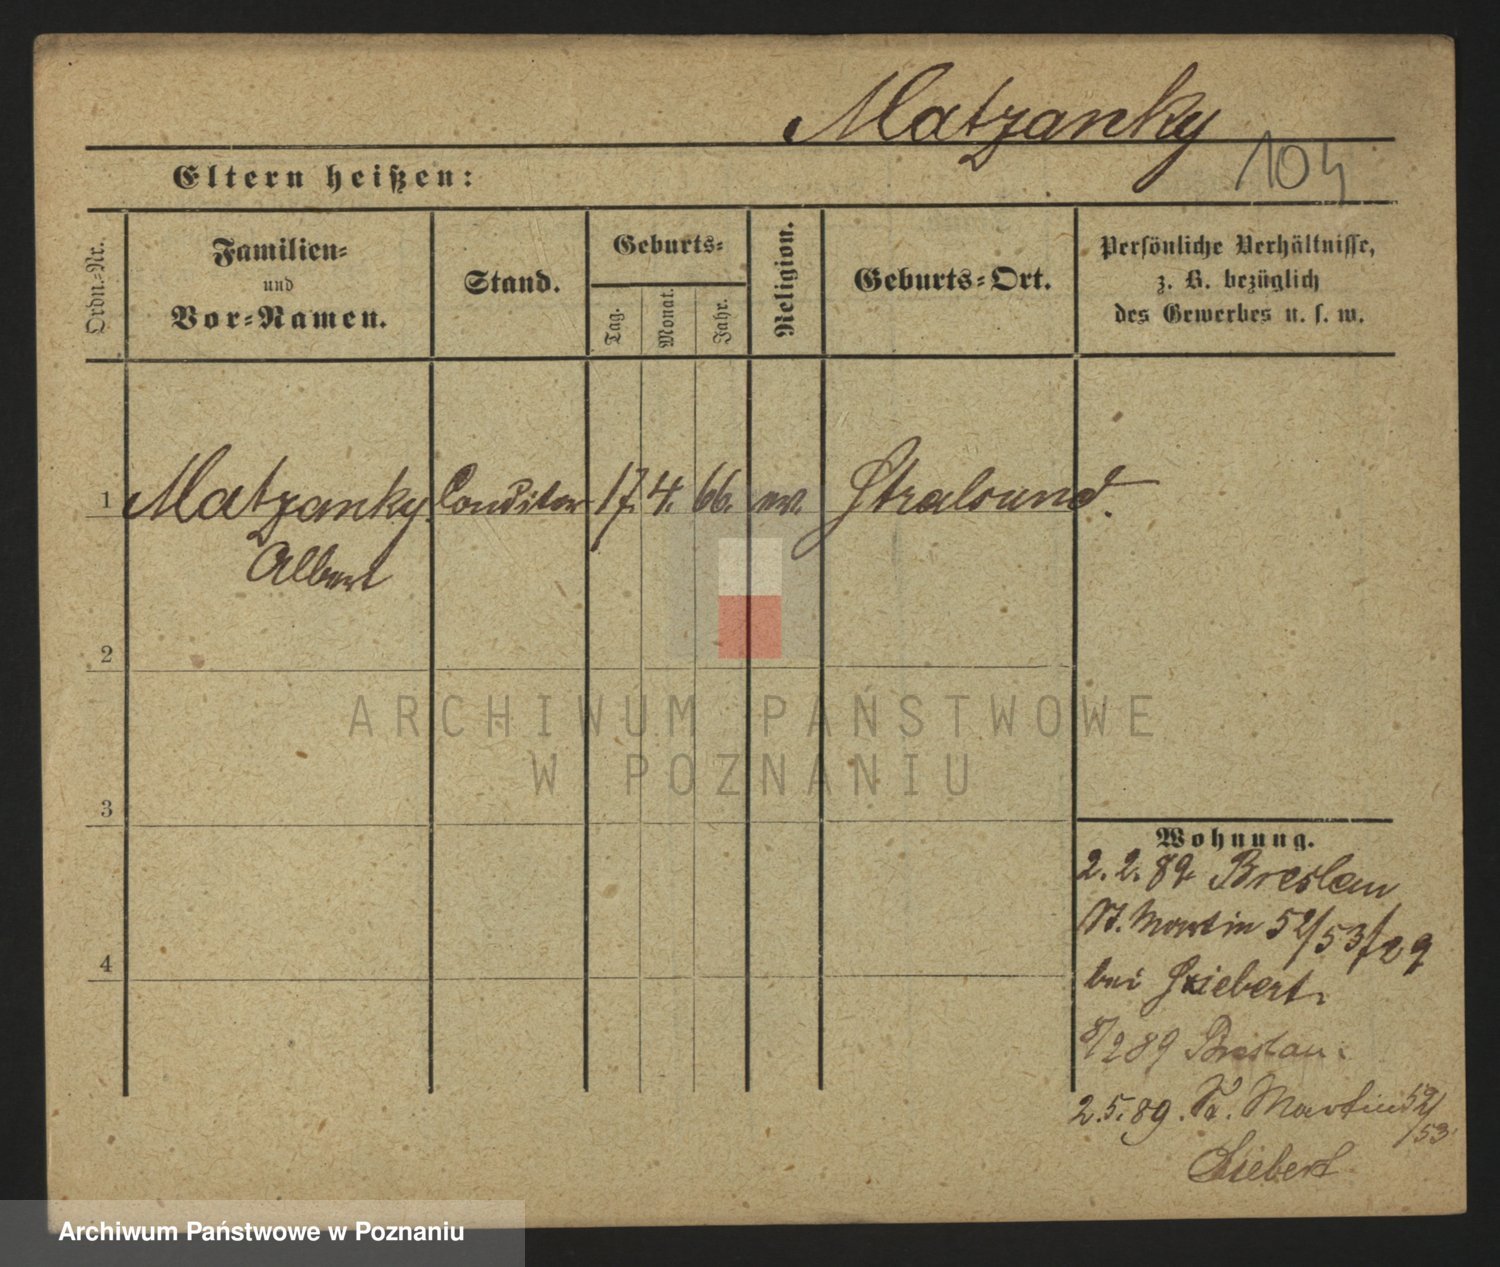 Matzanky
104
Eltern heißen:
Ordn.-Nr.
Familien-
und
Vor-Namen.
Stand.
Geburts-
Tag.
Monat.
Jahr.
Religion.
Geburts-Ort.
Persönliche Verhältnisse,
z. B. bezüglich
des Gewerbes u. s. w.
1 Matzanky Conditor 17. 4. 66. ev. Stralsund.
Albert
2
3
4
Wohnung.
2. 2. 89 Breslau
St. Martin 52/53/29
bei Siebert.
8/2 89 Breslau.
2. 5. 89. St. Martin 52/
53
Siebert
ARCHIWUM PAŃSTWOWE
W POZNANIU
Archiwum Państwowe w Poznaniu